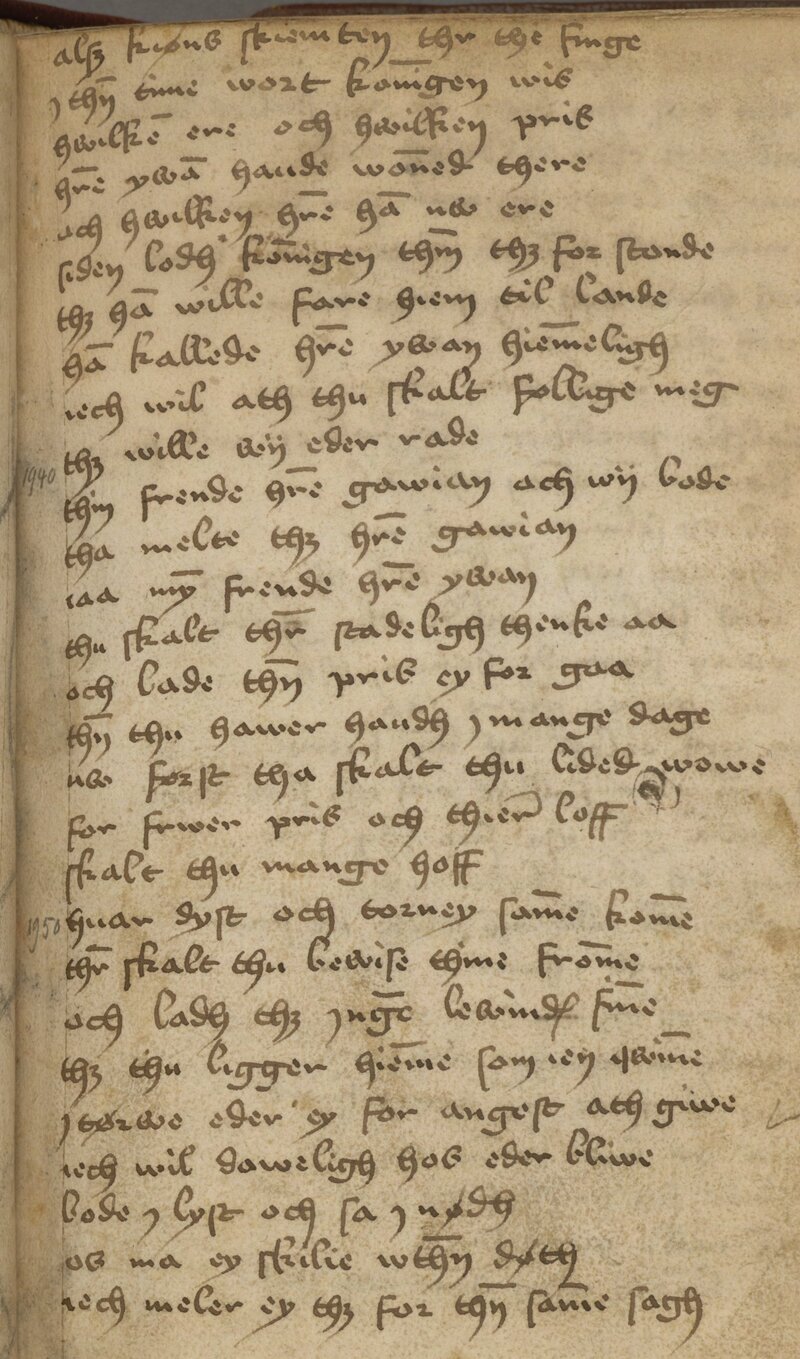 alsz kiøns skiemten thr the finge
j thn̄ time wort kon̄igen wis
hwilkē ere och hwilken pris
hr̄e ywā hande won̄ed there
och hwilken hr̄e hā nw ere
siden lodh kon̄igen thm̄ thz for stonde
thz hā wille fare hiem til lande
hā kallede hr̄e ywan hiem̄eligh
iech wil ath thu skalt føllige meg
thz wille wij eder rade
1940 thin frende hr̄e gawian och wij bode
tha melte thz hr̄e gawian
iaa my̅ frende hr̄e ywan
thu skalt thr̄ stadeligh thenke aa
och lade thn̄ pris ey for gaa
thn̄ thu hawer handh j mange dage
nw først tha skalt thu lided wowe
for frwer pris och thier̄ loff
skalt thu mange hoff
1950 huar dyst och torney sam̄e kom̄e
thr̄ skalt thu bewise thine from̄e
och ladh thz jng̅e lewindæ fin̄e
thz thu ligger hiem̄e som ien qwin̄e
j tørwe eder ey for angest ath giwe
iech wil daweligh hos eder bliwe
bode j lyst och sa j nødh
os ma ey skilie wthn̄ døth
iech meler ey thz for thn̄ sam̄e sagh